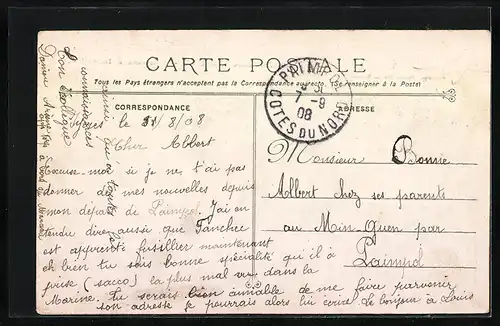 CARTE POSTALE
Tous les Pays étrangers n'acceptent pas la Correspondance au recto (Se renseigner à la Poste)
CORRESPONDANCE
ADRESSE
PAIMPOL
7 - 9
08
COTES DU NORD
le 31/8/08
Cher Albert
Excuse moi si je ne t'ai pas
donner de mes nouvelles depuis
mon départ de Paimpol. J'ai en
tendu dire aussi que Fanchec
est apprenti fusillier maintenant
eh bien tu sais bonne spécialité qu'il a
prise (sacco) la plus mal vu dans la
Marine. Tu serais bien aimable de me faire parvenir
son adresse je pourrais alors lui ecrire Le bonjour à Louis
Ton Collègue
Monsieur Bonnie
Albert chez ses parents
au Min-Guen par
Paimpol